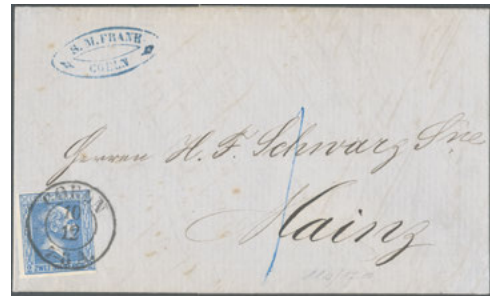 S. M. FRANK
COELN
Herren H. F. Schwarz Sne
Mainz
COELN
10
12
ZWEI